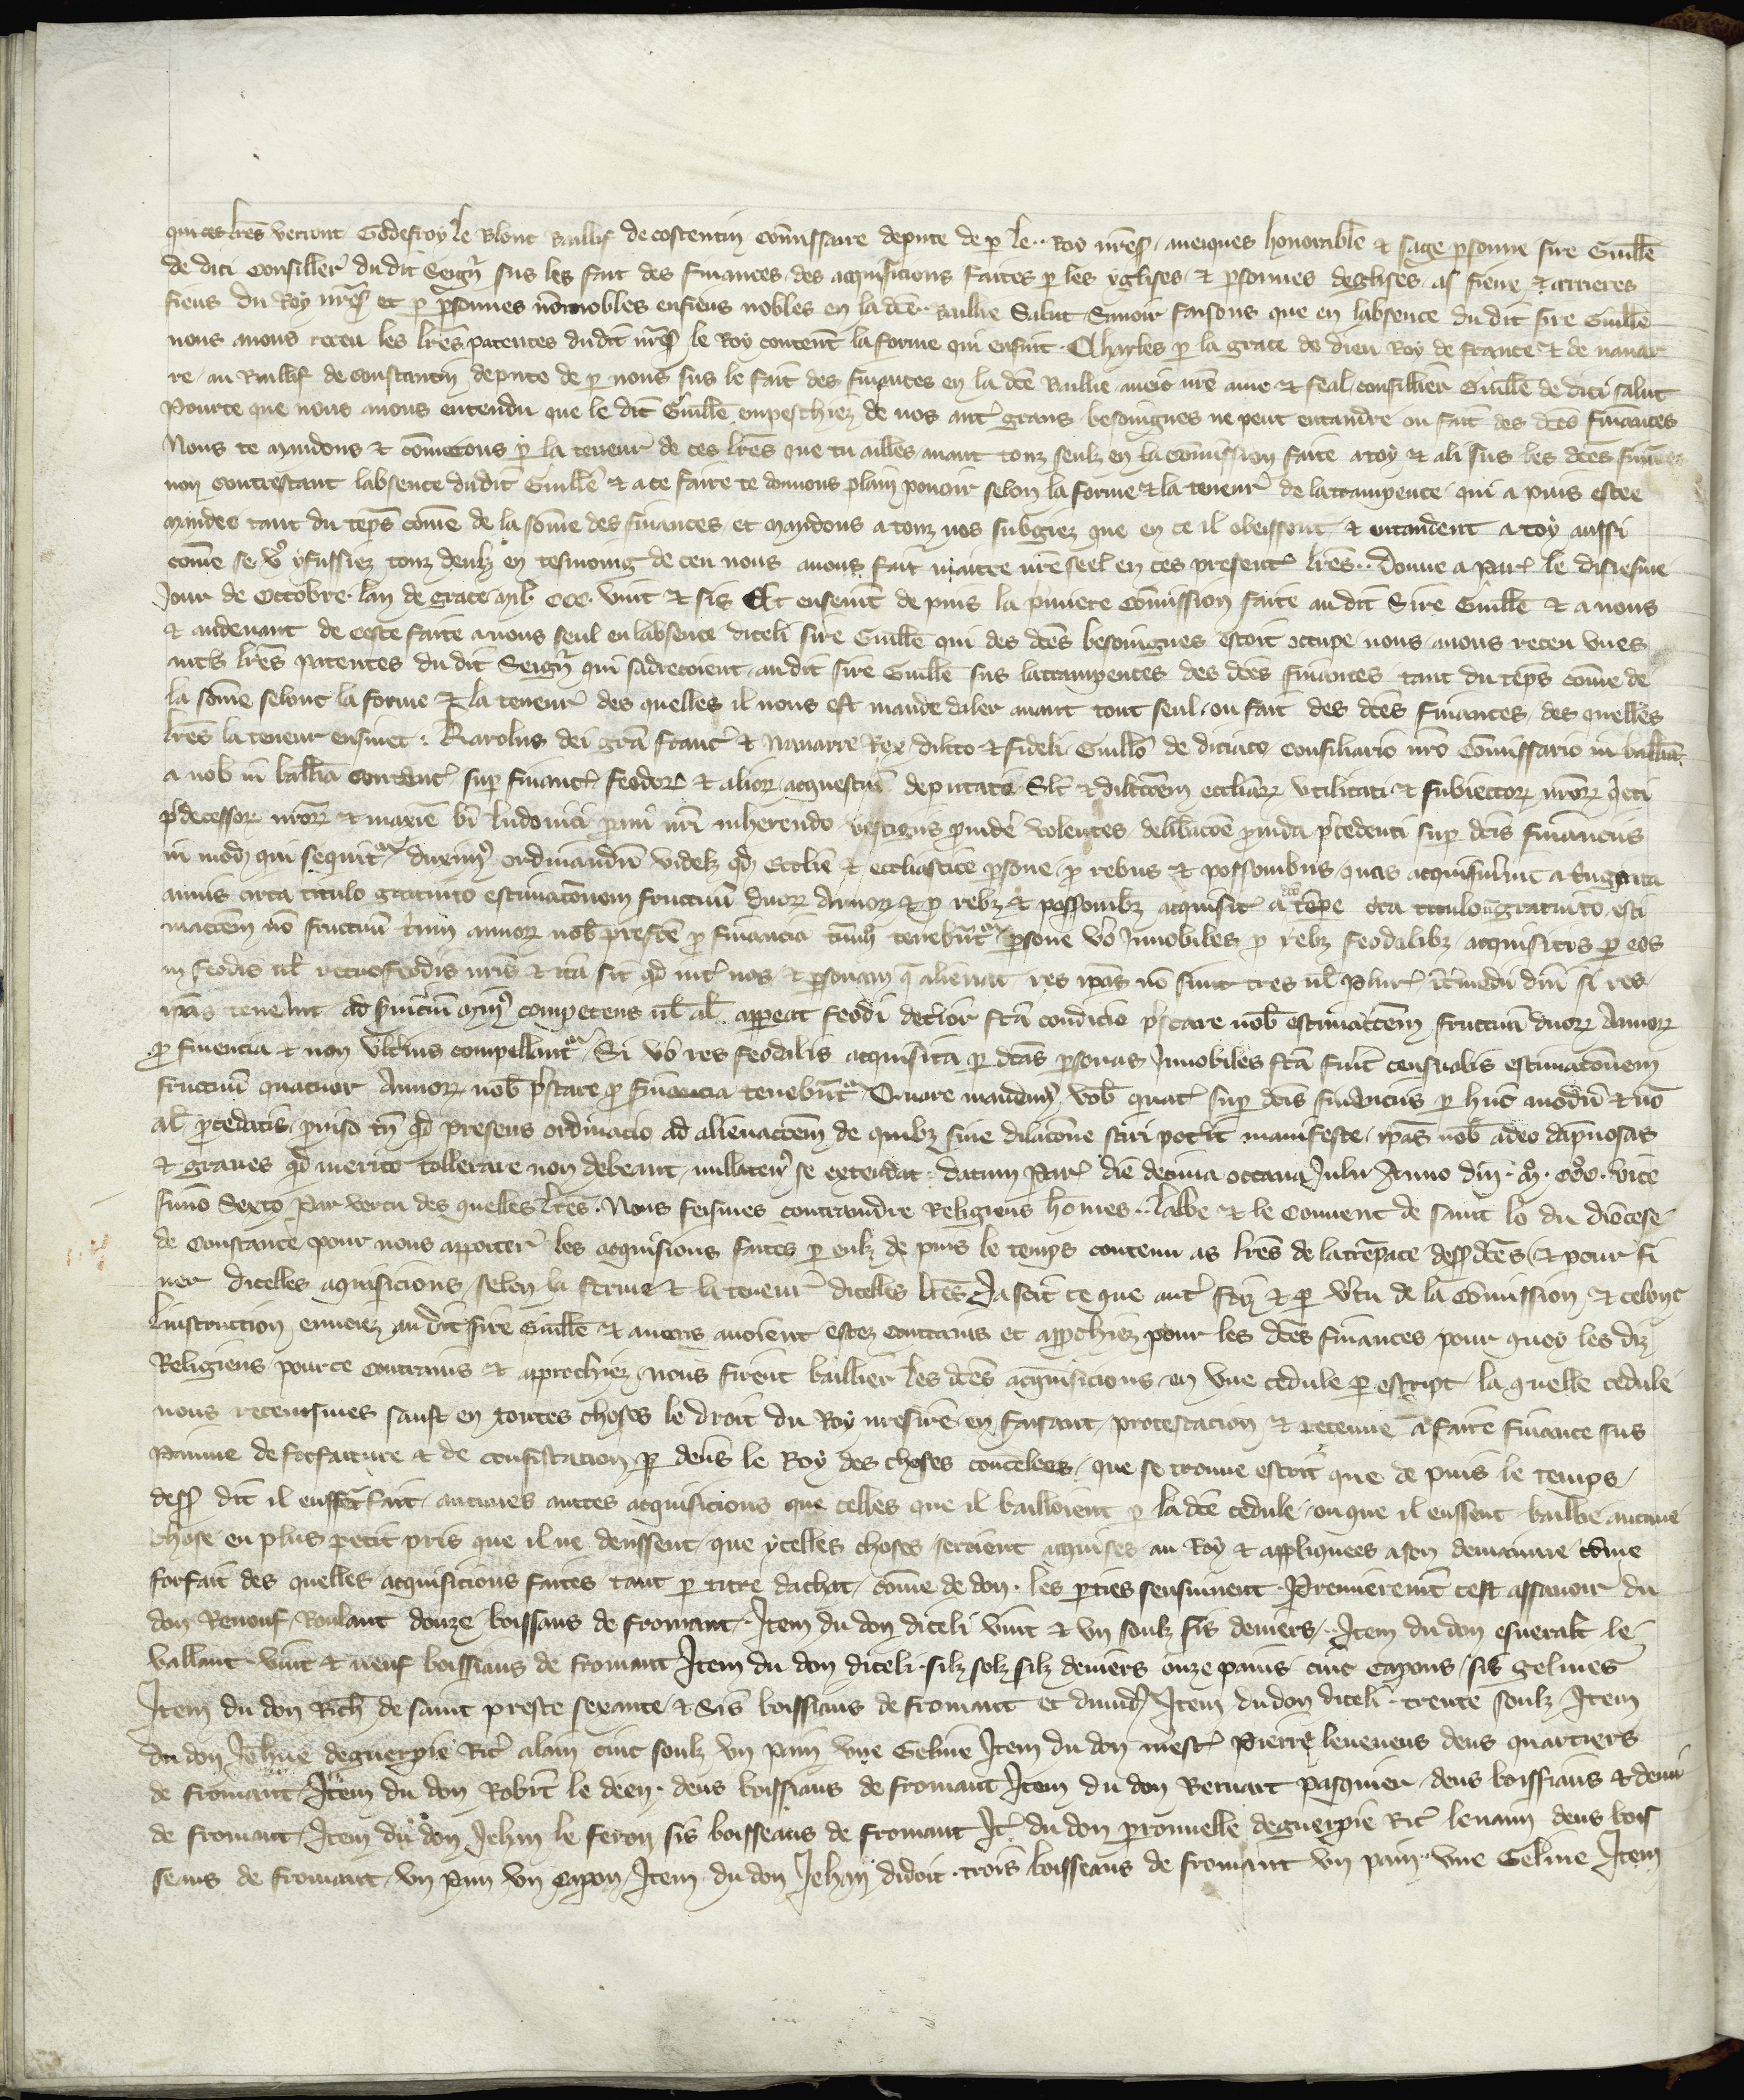 qui ces lres verront Godefroy le Blonc Baillif de costentin commissaire depute de p le .. Roy nreS. aueiques honorable & sage psonne sire Guille
de dici Consiller du dit Seignr sus les fait des finances des acquisicions faites p les yglises & psonnes deglises as fieux & arrieres
fieus du Roy nreS et p psonnes nonnobles en fieus nobles en la dce Baillie Salut Sauoir faisons que en labsence du dit sire Guille
nous auons receu les lres patentes du dit nreS le Roy content la forme qui ensuit. Charles p la grace de dieu Roy de france & de nauar
re au Baillif de Constantin depute de p nous sus le fait des finances en la dce Baillie aueic nre ame & feal consillier Guille de dici salut
Pource que nous auons entendu que le dit Guille empeschiez de nos autr grans besoingnes ne peut entandre ou fait des dces finances
Nous te mandons & cometons p la teneur de ces lres que tu ailles auant touz seulz en la comission faite a toy & a li sus les dces finances
non contrestant labsence dudit Guille & a ce faire te donnons plain pouoir selon la forme & la teneur de latrampence qui a puis estee
mandee tant du teps come de la some des finances et mandons a touz nos subgiez que en ce il obeissent & entandent a toy aussi
come se v9 y fussiez touz deulz en tesmoing de ceu nous auons fait maitre nre seel en ces present lres. Donne a Par le disiesme
Jour de Octobre lan de grace mil CCC vint & sis Et enseuit de puis la pmiere Comission faite au dit Sire Guille & a nous
& audeuant de ceste faite a nous seul en labsence diceli sire Guille qui des dces besoingnes estoit occupe nous auons receu vnes
autrs lres patentes du dit Seignr qui sadrecoient au dit sire Guille sus lattrampences des dces finances tant du teps come de
la some selonc la forme & la teneur des quelles il nous est mande daler auant tout seul ou fait des dces finances des quelles
lres la teneur ensiuet: Karolus dei gra franc & Nauarre Rex dilcto & fideli Guillo de diciaco consiliario nro Comissario in balliā
a nob in ballia Constanc sup financ feodor & alior acquestuu deputato Slt & dilcoem eccliarz vtilitati & subiector nror qeti
pdecessor nror & maxie bi ludouici pui nri inherendo vestigiis puide volentes delibacoe puida pcedenti sup dcis financiis
in mod qui sequitr duxim9 ordinandu videlz qd Ecclie & eccliastice psone p rebus & possionibus quas acquisiuert a Quadraginta
annis circa titulo gratuito estimacionem fructuu duorz Annorz & p rebz & possonibz acquisit a dco tempe cita titulo no gratuito esti
macoem no fructuu triu annorz nob prestde p financia tinu tenebutr psone vo Innobiles p rebz feodalibz acquisitis p eos
in feodis ul retrofeodis nris & ita sit qd int nos & psonam q alienat res ipas no sint tres ul plur itmedii dni si res
ipas teneant ad seruiciu min9 competens ul al appeat feodi detior fca condicio pstare nob estimacoem fructuu duorz Annorz
p finencia & non vlteius compellantr Si vo res feodalis acquisita p dcas psonas Innobiles fca fuit censualis estimacionem
fructuu quatuor Annorz nob pstare p financia tenebutr Quare mandam9 vob quat sup dcis financiis p huc modu & no
al pcedatis puiso tn qd presens ordinacio ad alienacoem de quibz sine dilacione sciri potit manifeste ipas nob adeo dapnosas
& graues qd merito tollerare non debeant nullaten9 se extendat: datum Par die decima octaua Julii Anno dni. mo. CCCo. vice
simo Sexto Par vertu des quelles lres. Nous feismes contraindre Religieus homes .. labbe & le Conuent de saint lo du diocese
de Constance pour nous apporter les acquisions faites p eulz de puis le temps contenu as lres de latrepace dess dces & pour fi
ner dicelles aquisicions selon la forme & la teneur dicelles lres Ja soit ce que aut foiz & p vtu de la Comission & celonc
linstruction enuoiez au dit sire Guille & autres auoient estez contrains et approchiez pour les dces finances pour quoy les diz
Religieus pour ce contrains & approchiez nous firent baillier les dces acquisicions en vne cedule p escript la quelle cedule
nous receumes sauft en toutes choses le droit du Roy nresire en faisant protestacion & retenue a faire finance sus
painne de forfaiture & de confiscacion p deus le Roy des choses concelees que se trouue estoit que de puis le temps
dess dit il eussent fait autunes autres acquisicions que celles que il bailloient p la dce cedule ou que il eussent baillie aucune
chose en plus petit pris que il ne deussent que ycelles choses seroient acquises au Roy & appliquees a son demainne come
forfait des quelles acquisicions faites tant p titre dachat come de don les pties sensuiuent Premieremt cest assauoir du
don Renouf Roulant douze boissaus de fromant. Item du don diceli vint & vn soulz sis deniers. Item du don esueralt le
vallant vint & neuf boissiaus de fromant Item du don diceli silz solz silz deniers onze pains cinc capons sis gelines
Item du don Rich de saint preste sexante & Sis boissiaus de fromant et dimid Item du don diceli trente soulz Item
du don Jehne deguerpie Ric alain cinc soulz vn pain vne Geline Item du don mestr Pierre leueneus deus quartiers
de fromant Item du don Robrt le deen. deus boissiaus de fromant Item du don Bernart pasquier deus boissiaus & demi
de fromant Item du don Jehan le feron sis boisseaus de fromant It du don pronnelle deguerpie Ric lenain deus bois
seaus de fromant vn pain vn capon Item du don Jehan didoit trois boisseaus de fromant vn pain vne Geline Item